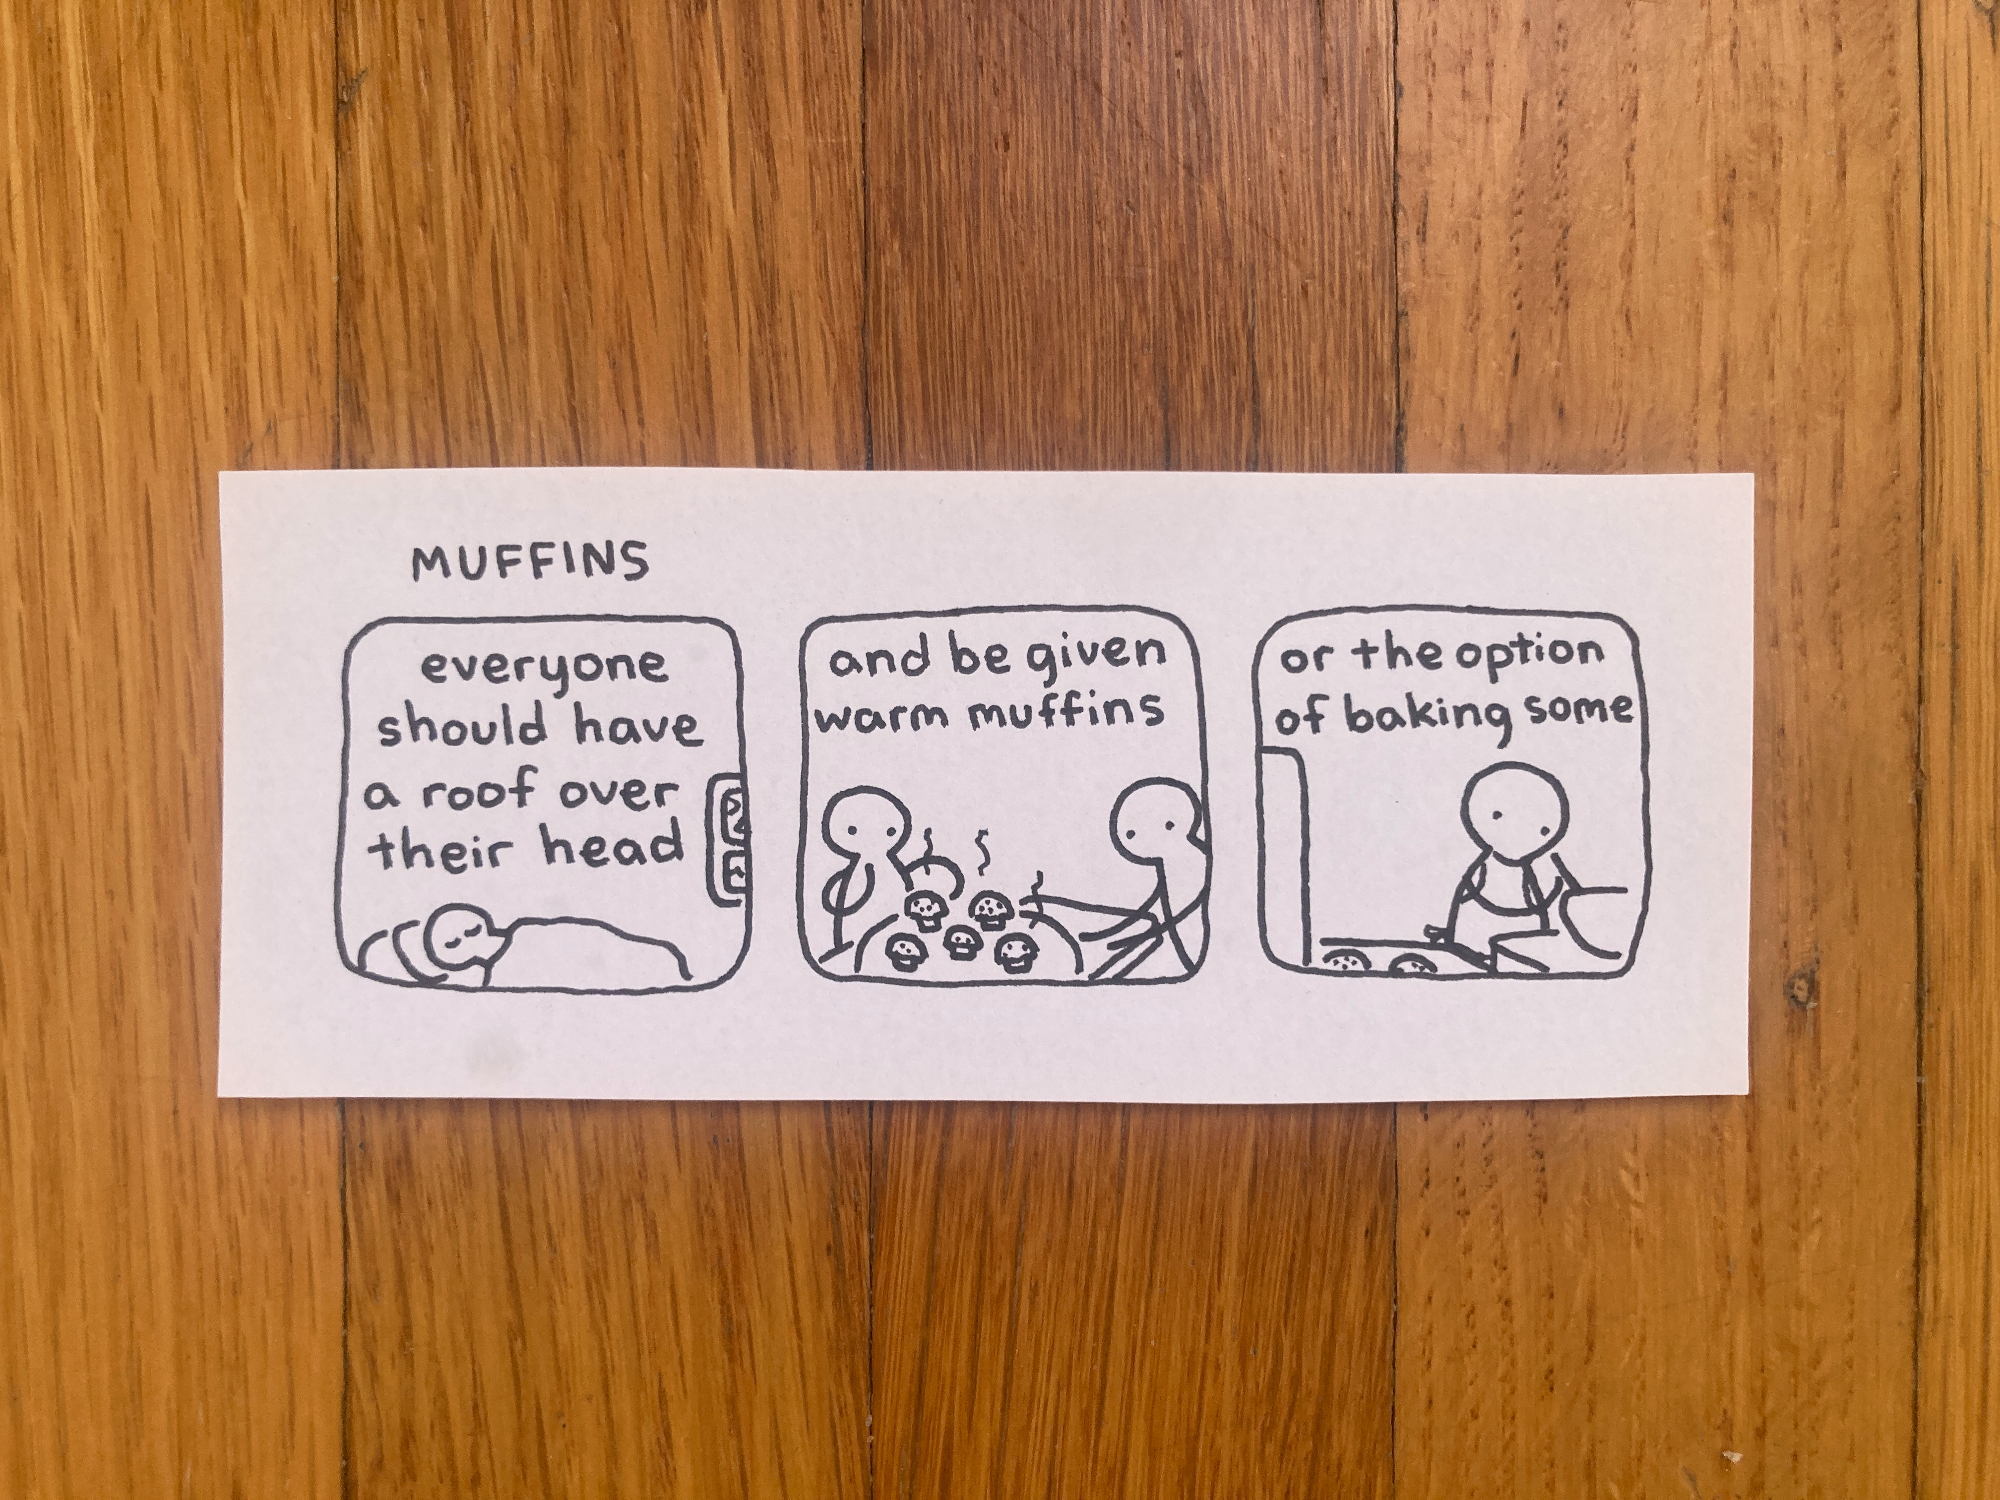 MUFFINS
everyone
should have
a roof over
their head
and be given
warm muffins
or the option
of baking some